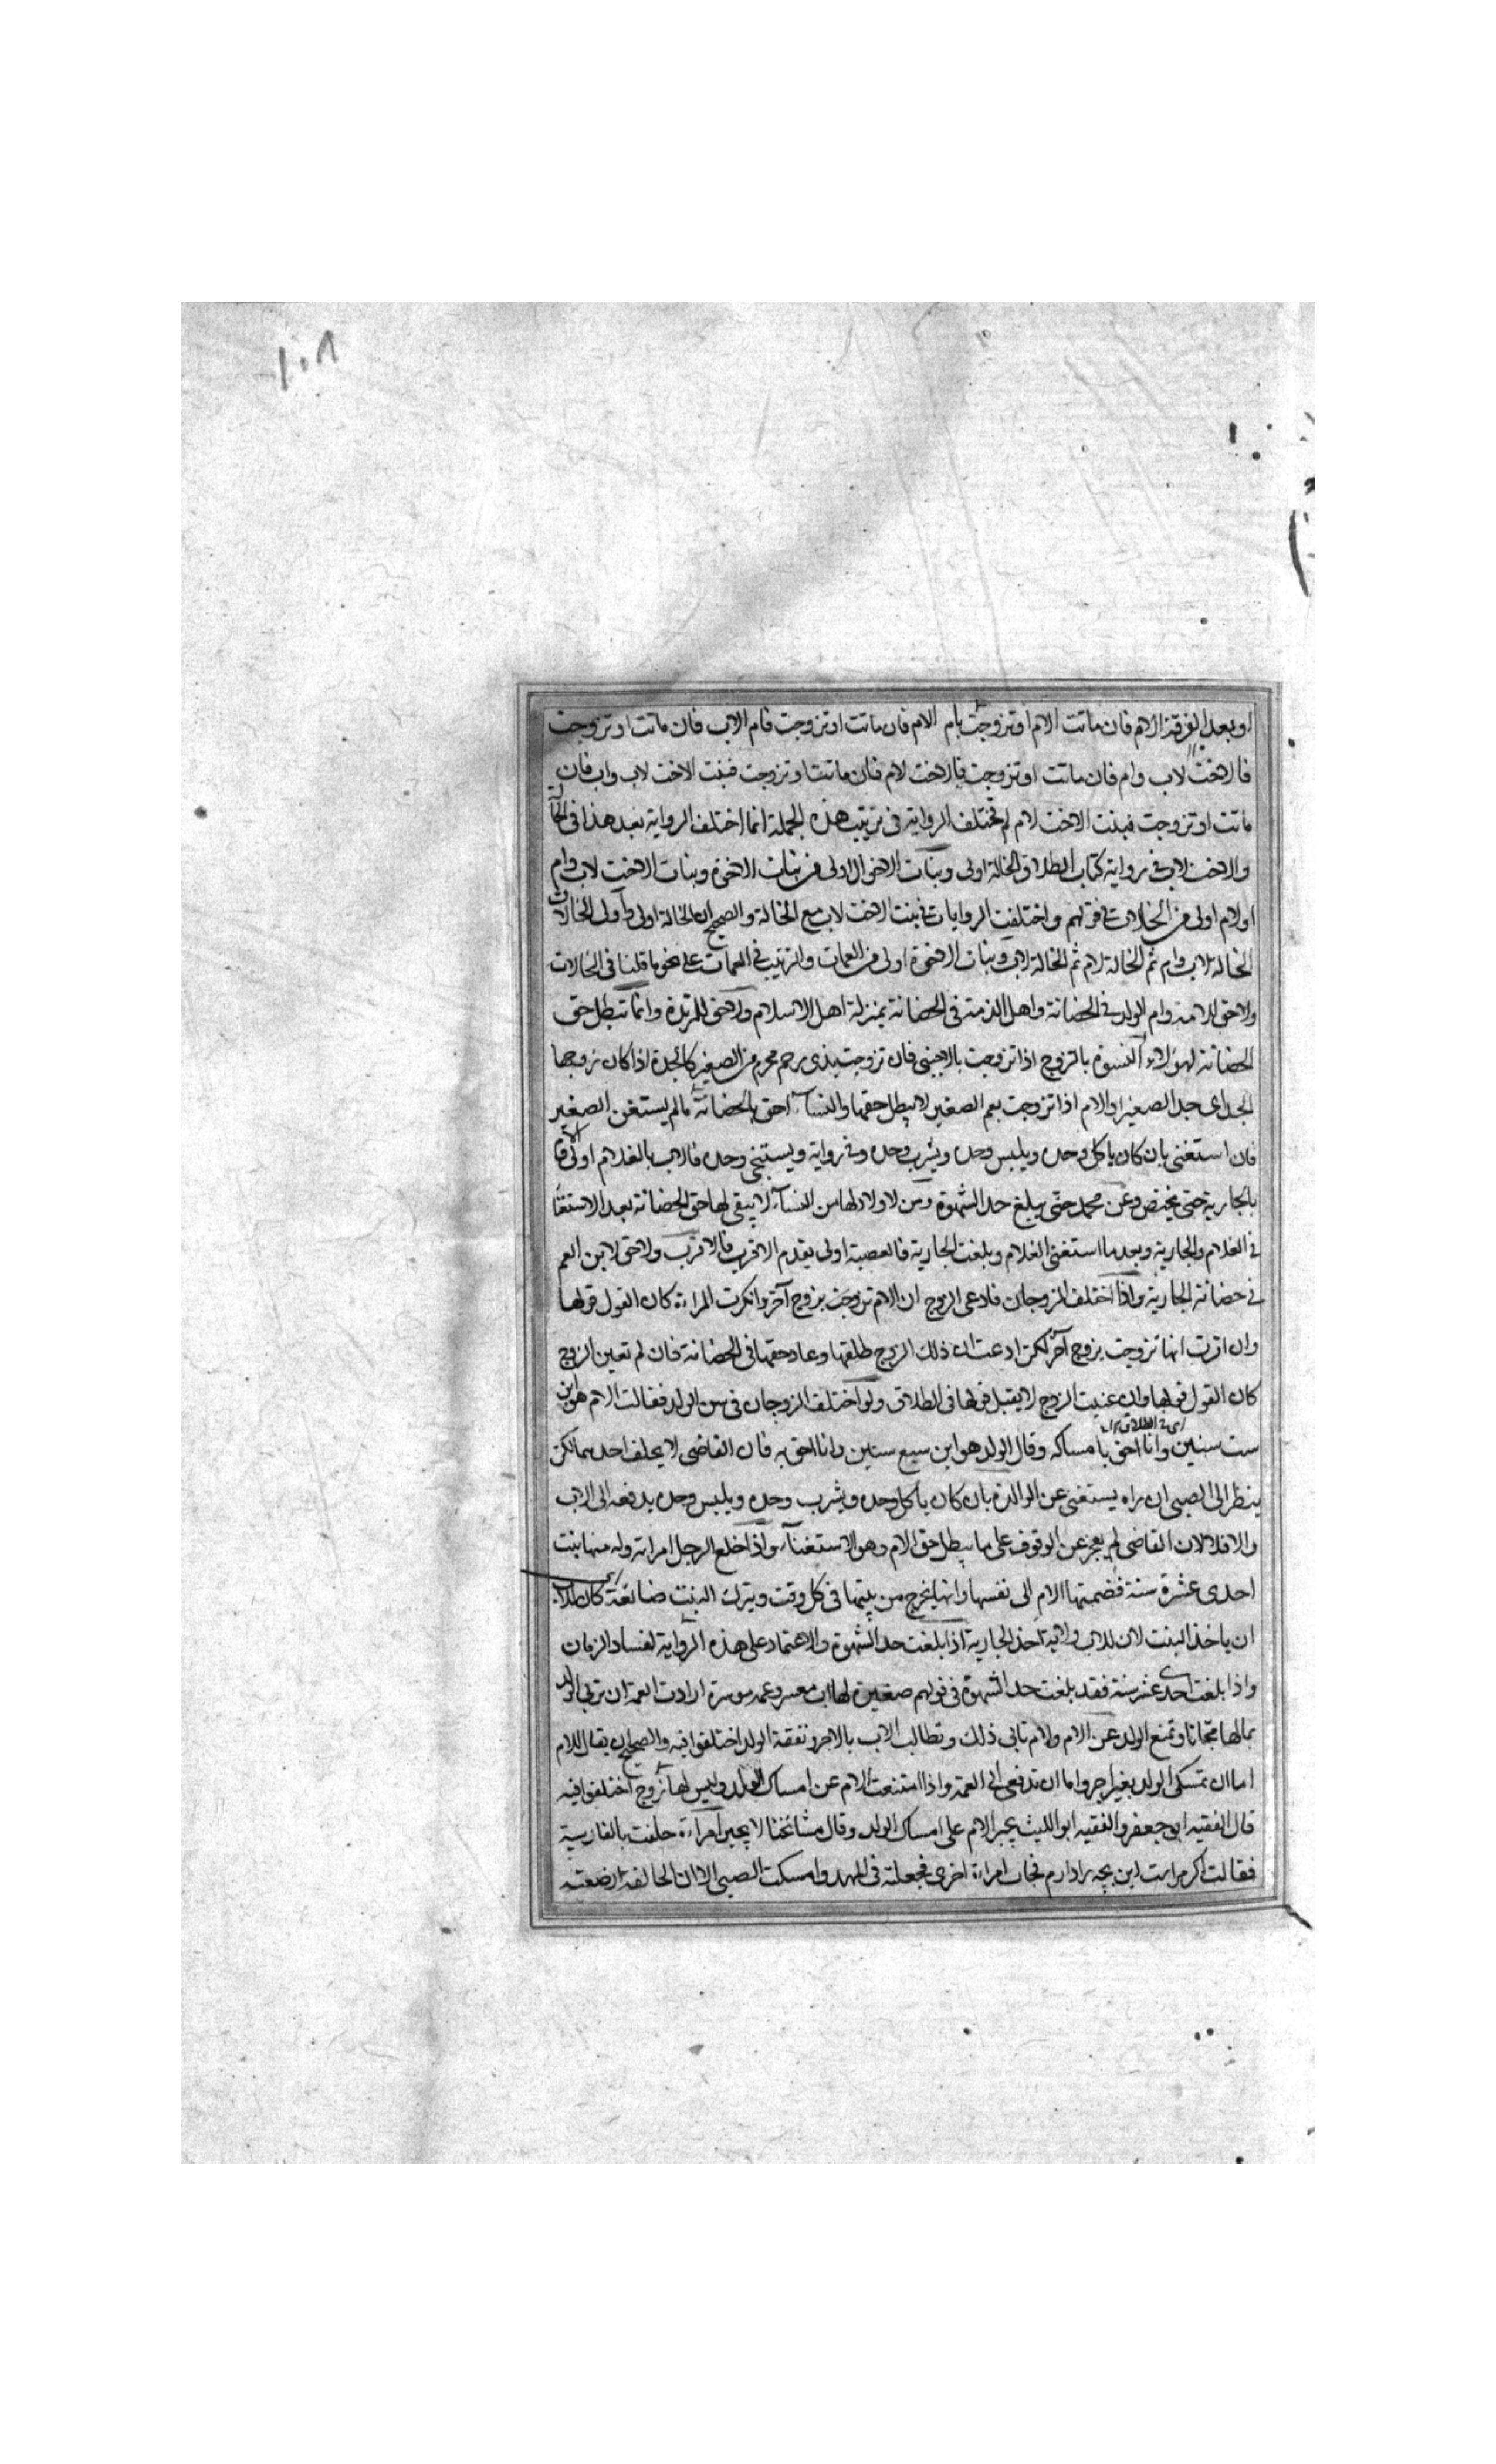 ١٠٨
او بعد الفرقة الام فان ماتت الام او تزوجت فام الام فان ماتت او تزوجت فام الاب فان ماتت او تزوجت
فالاخت لاب وام فان ماتت او تزوجت فالاخت لام فان ماتت او تزوجت فبنت الاخت لاب وام فان
ماتت او تزوجت فبنت الاخت لام لم تختلف الرواية فى ترتيب هذه الجملة انما اختلف الرواية بعد هذا فى الخالة
والاخت لاب فى رواية كتاب الطلاق الخالة اولى وبنات الاخوال اولى من بنات الاخوة وبنات الاخت لاب وام
او لام اولى من الخالات فى قولهم واختلفت الروايات فى بنت الاخت لاب مع الخالة والصحيح ان الخالة اولى واولى الخالات
الخالة لاب وام ثم الخالة لام ثم الخالة لاب وبنات الاخوة اولى من العمات والترتيب فى العمات على نحو ما قلنا فى الخالات
ولا حق للامة وام الولد فى الحضانة واهل الذمة فى الحضانة بمنزلة اهل الاسلام ولا حق للمرتدة وانما تبطل حق
الحضانة لهؤلاء النسوة بالتزوج اذا تزوجت بالاجنبى فان تزوجت بذى رحم محرم من الصغير كالجدة اذا كان زوجها
الجد اى جد الصغير او الام اذا تزوجت بعم الصغير لا يبطل حقها والنساء احق بالحضانة ما لم يستغن الصغير
فان استغنى بان كان ياكل وحده ويلبس وحده ويشرب وحده وفى رواية ويستنجى وحده فالاب بالغلام اولى والام
بالجارية حتى تحيض وعن محمد حتى يبلغ حد الشهوة ومن لا ولاد لها من النساء لا يبقى لها حق الحضانة بعد الاستغناء
فى الغلام والجارية وبعد ما استغنى الغلام وبلغت الجارية فالعصبة اولى يقدم الاقرب فالاقرب ولا حق لابن العم
فى حضانة الجارية واذا اختلف الزوجان فادعى الزوج ان الام تزوجت بزوج آخر وانكرت المراءة كان القول قولها
وان اقرت انها تزوجت بزوج آخر لكن ادعت ان ذلك الزوج طلقها وعاد حقها فى الحضانة فان لم تعين الزوج
كان القول قولها وان عينت الزوج لا يقبل قولها فى الطلاق ولو اختلف الزوجان فى سن الولد فقالت الام هو ابن
ست سنين وانا احق بامساكه وقال الولد هو ابن سبع سنين وانا احق به فان القاضى لا يحلف احدهما لكن
ينظر الى الصبى ان راه يستغنى عن الوالدة بان كان ياكل وحده ويشرب وحده ويلبس وحده يدفعه الى الاب
والا فلا لان القاضى لم يعجز عن الوقوف على ما يبطل حق الام وهو الاستغناء واذا خلع الرجل امراته وله منها بنت
احدى عشرة سنة فضمتها الام الى نفسها وانها يخرج من بيتها فى كل وقت ويترك البنت ضائعة كان للاب
ان ياخذ البنت لان للاب ولاية اخذ الجارية اذا بلغت حد الشهوة والاعتماد على هذه الرواية لفساد الزمان
واذا بلغت احدى عشر سنة فقد بلغت حد الشهوة فى قولهم صغيرة لها اب معسر وعمه موسرة ارادت العمة ان تربى الولد
بمالها مجانا وتمنع الولد عن الام والام تابى ذلك وتطالب الاب بالاجر ونفقة الولد اختلفوا فيه والصحيح ان يقال للام
اما ان تمسكى الولد بغير اجر واما ان تدفعى الى العمة واذا امتنعت الام عن امساك الولد وليس لها زوج اختلفوا فيه
قال الفقيه ابو جعفر والفقيه ابو الليث يجبر الام على امساك الولد وقال مشائخنا لا يجبر امراءة حلفت بالفارسية
فقالت اكر من است اين بچه را دارم فجات امراءة اخرى فجعلته فى المهد وامسكت الصبى الا ان الحالفة ارضعته